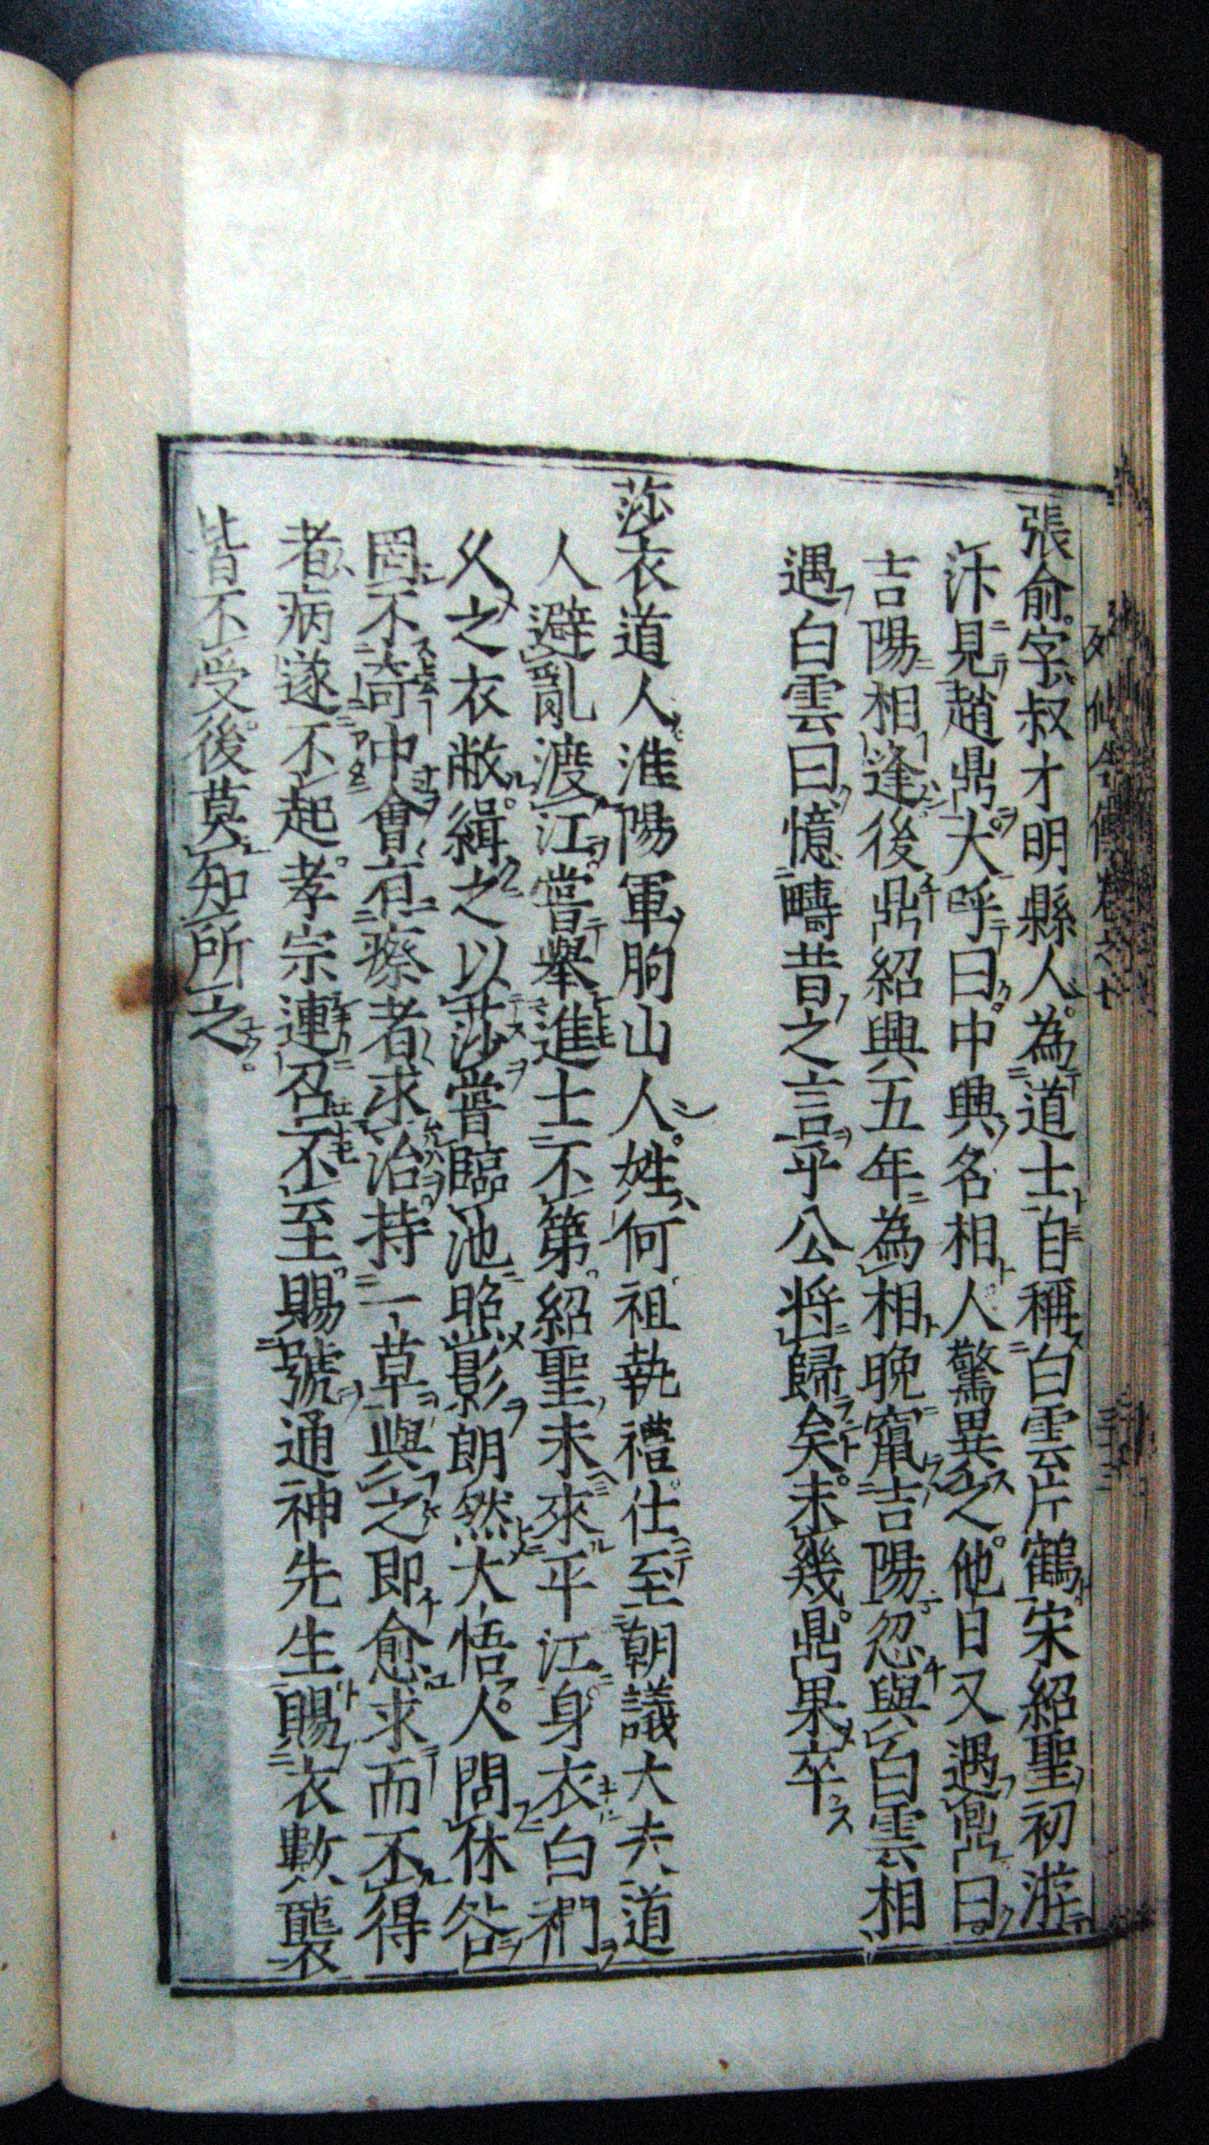 張俞字叔才明縣人為道士自稱白雲片鶴宋紹聖初游
汴見趙鼎大呼曰中興名相人驚異之他日又遇鼎曰
吉陽相逢後鼎紹興五年為相晚竄吉陽忽與白雲相
遇白雲曰憶疇昔之言乎公将歸矣未幾鼎果卒
莎衣道人淮陽軍朐山人姓何祖執禮仕至朝議大夫道
人避亂渡江嘗舉進士不第紹聖末來平江身衣白襴
久之衣敝緝之以莎嘗臨池照影朗然大悟人問休咎
罔不奇中會有瘵者求治持一草與之即愈求而不得
者病遂不起孝宗連召不至賜號通神先生賜衣數襲
皆不受後莫知所之